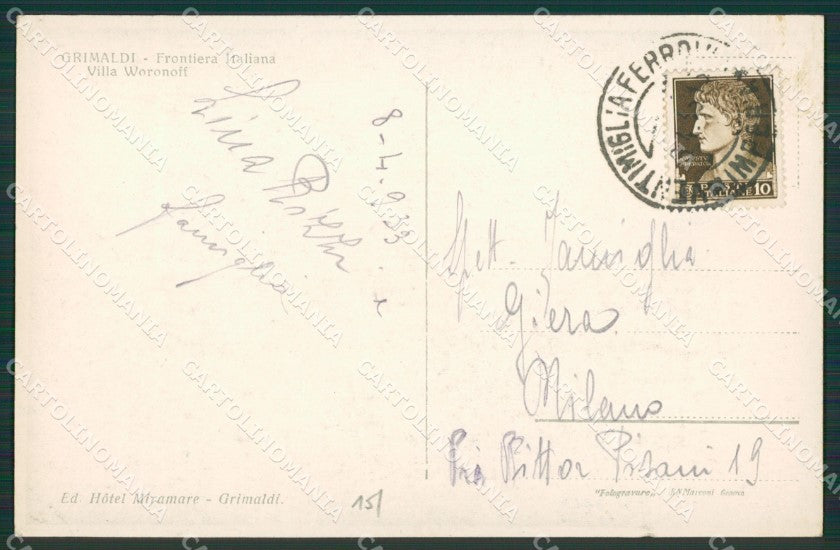 GRIMALDI - Frontiera Italiana
Villa Woronoff
8-4-933
Lina
famiglia
Ed. Hôtel Miramare - Grimaldi.
15/
VENTIMIGLIA FERROVIA
10
Spett. Famiglia
Gilera
Milano
Via Vittor Pisani 19
"Fotogravure" Genova
CARTOLINOMANIA